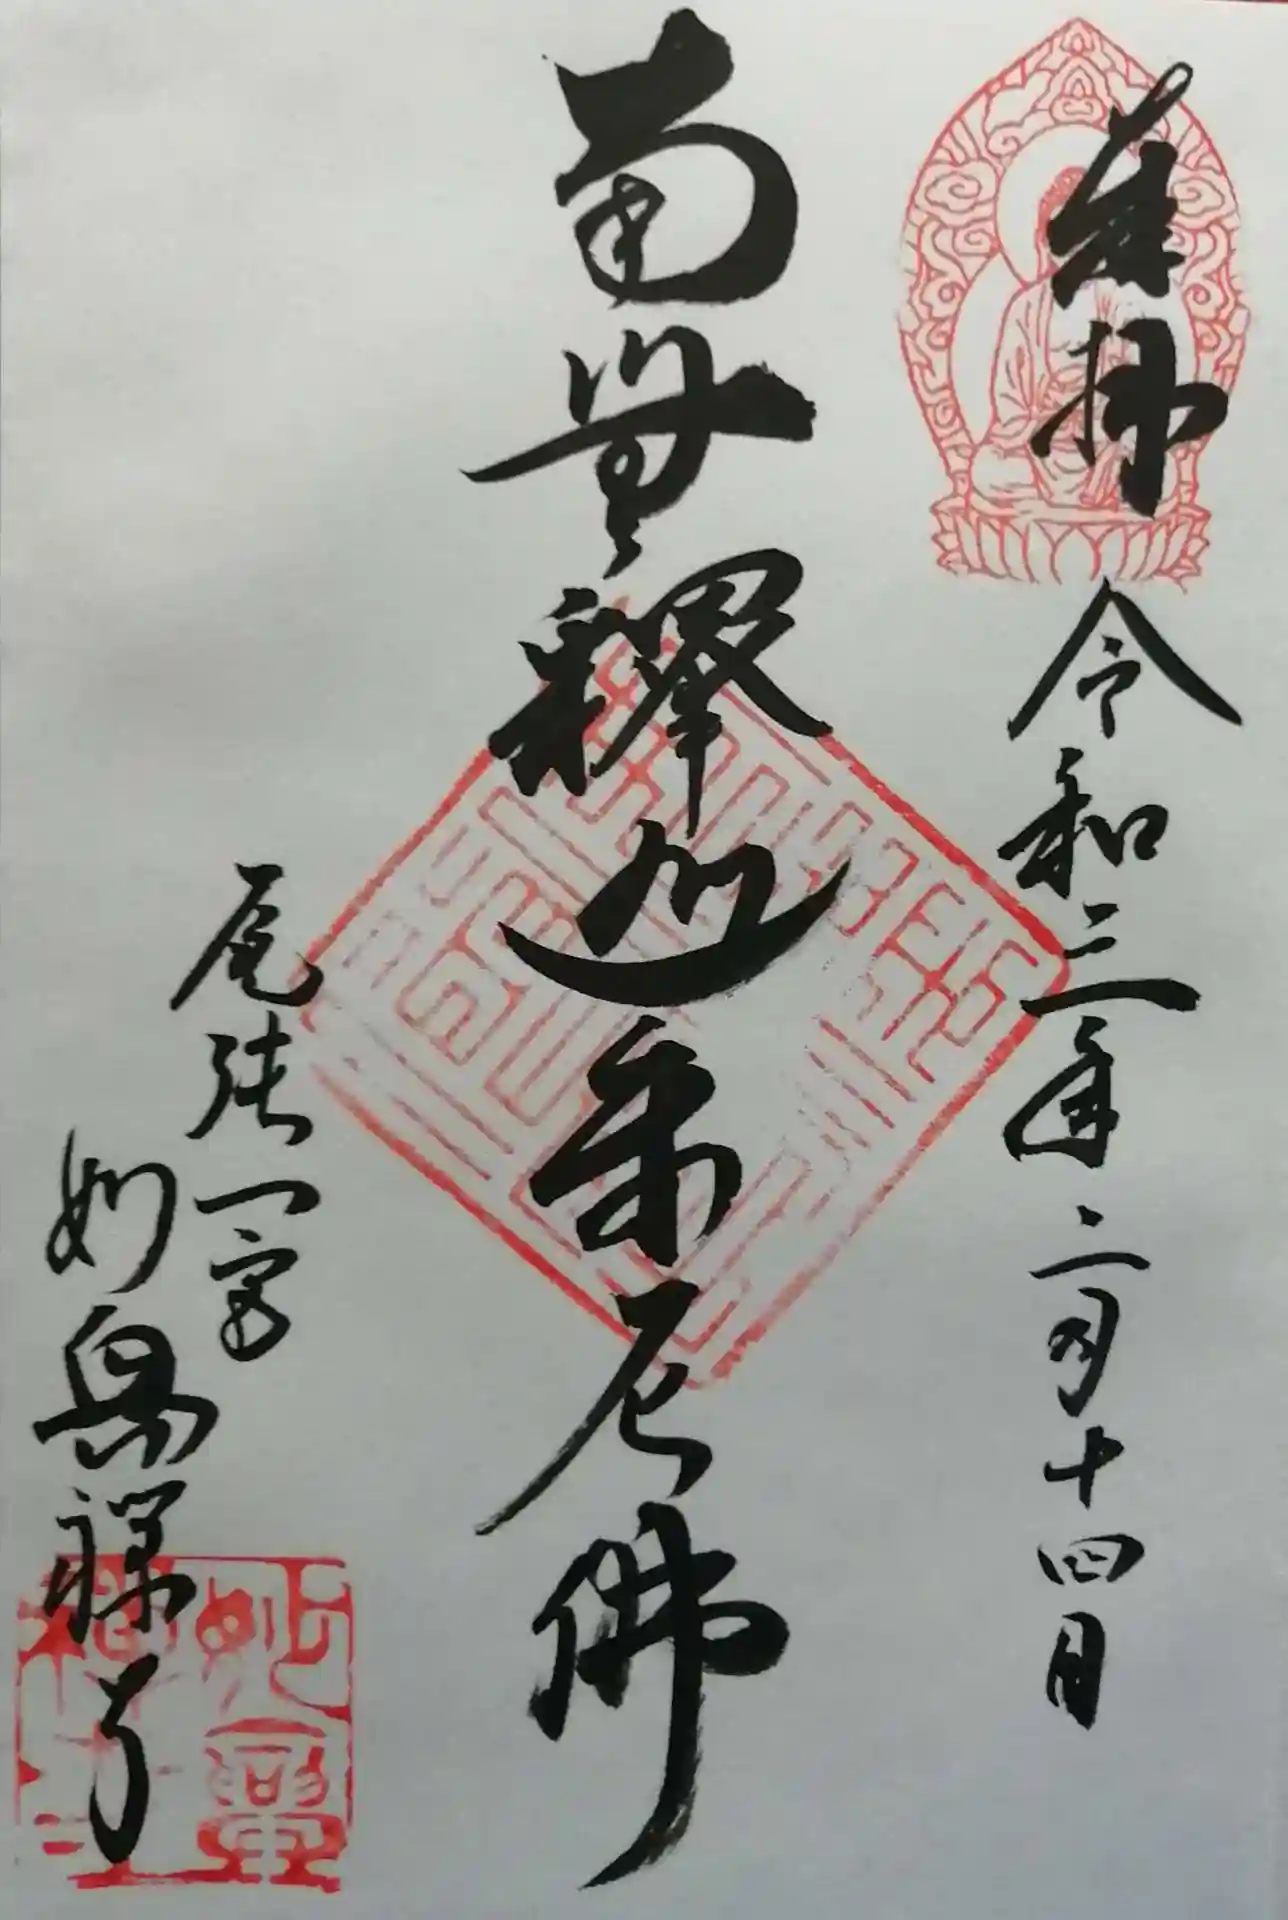 奉拝 令和三年二月十四日
南無釋迦牟尼佛
尾張一宮
妙興禅寺